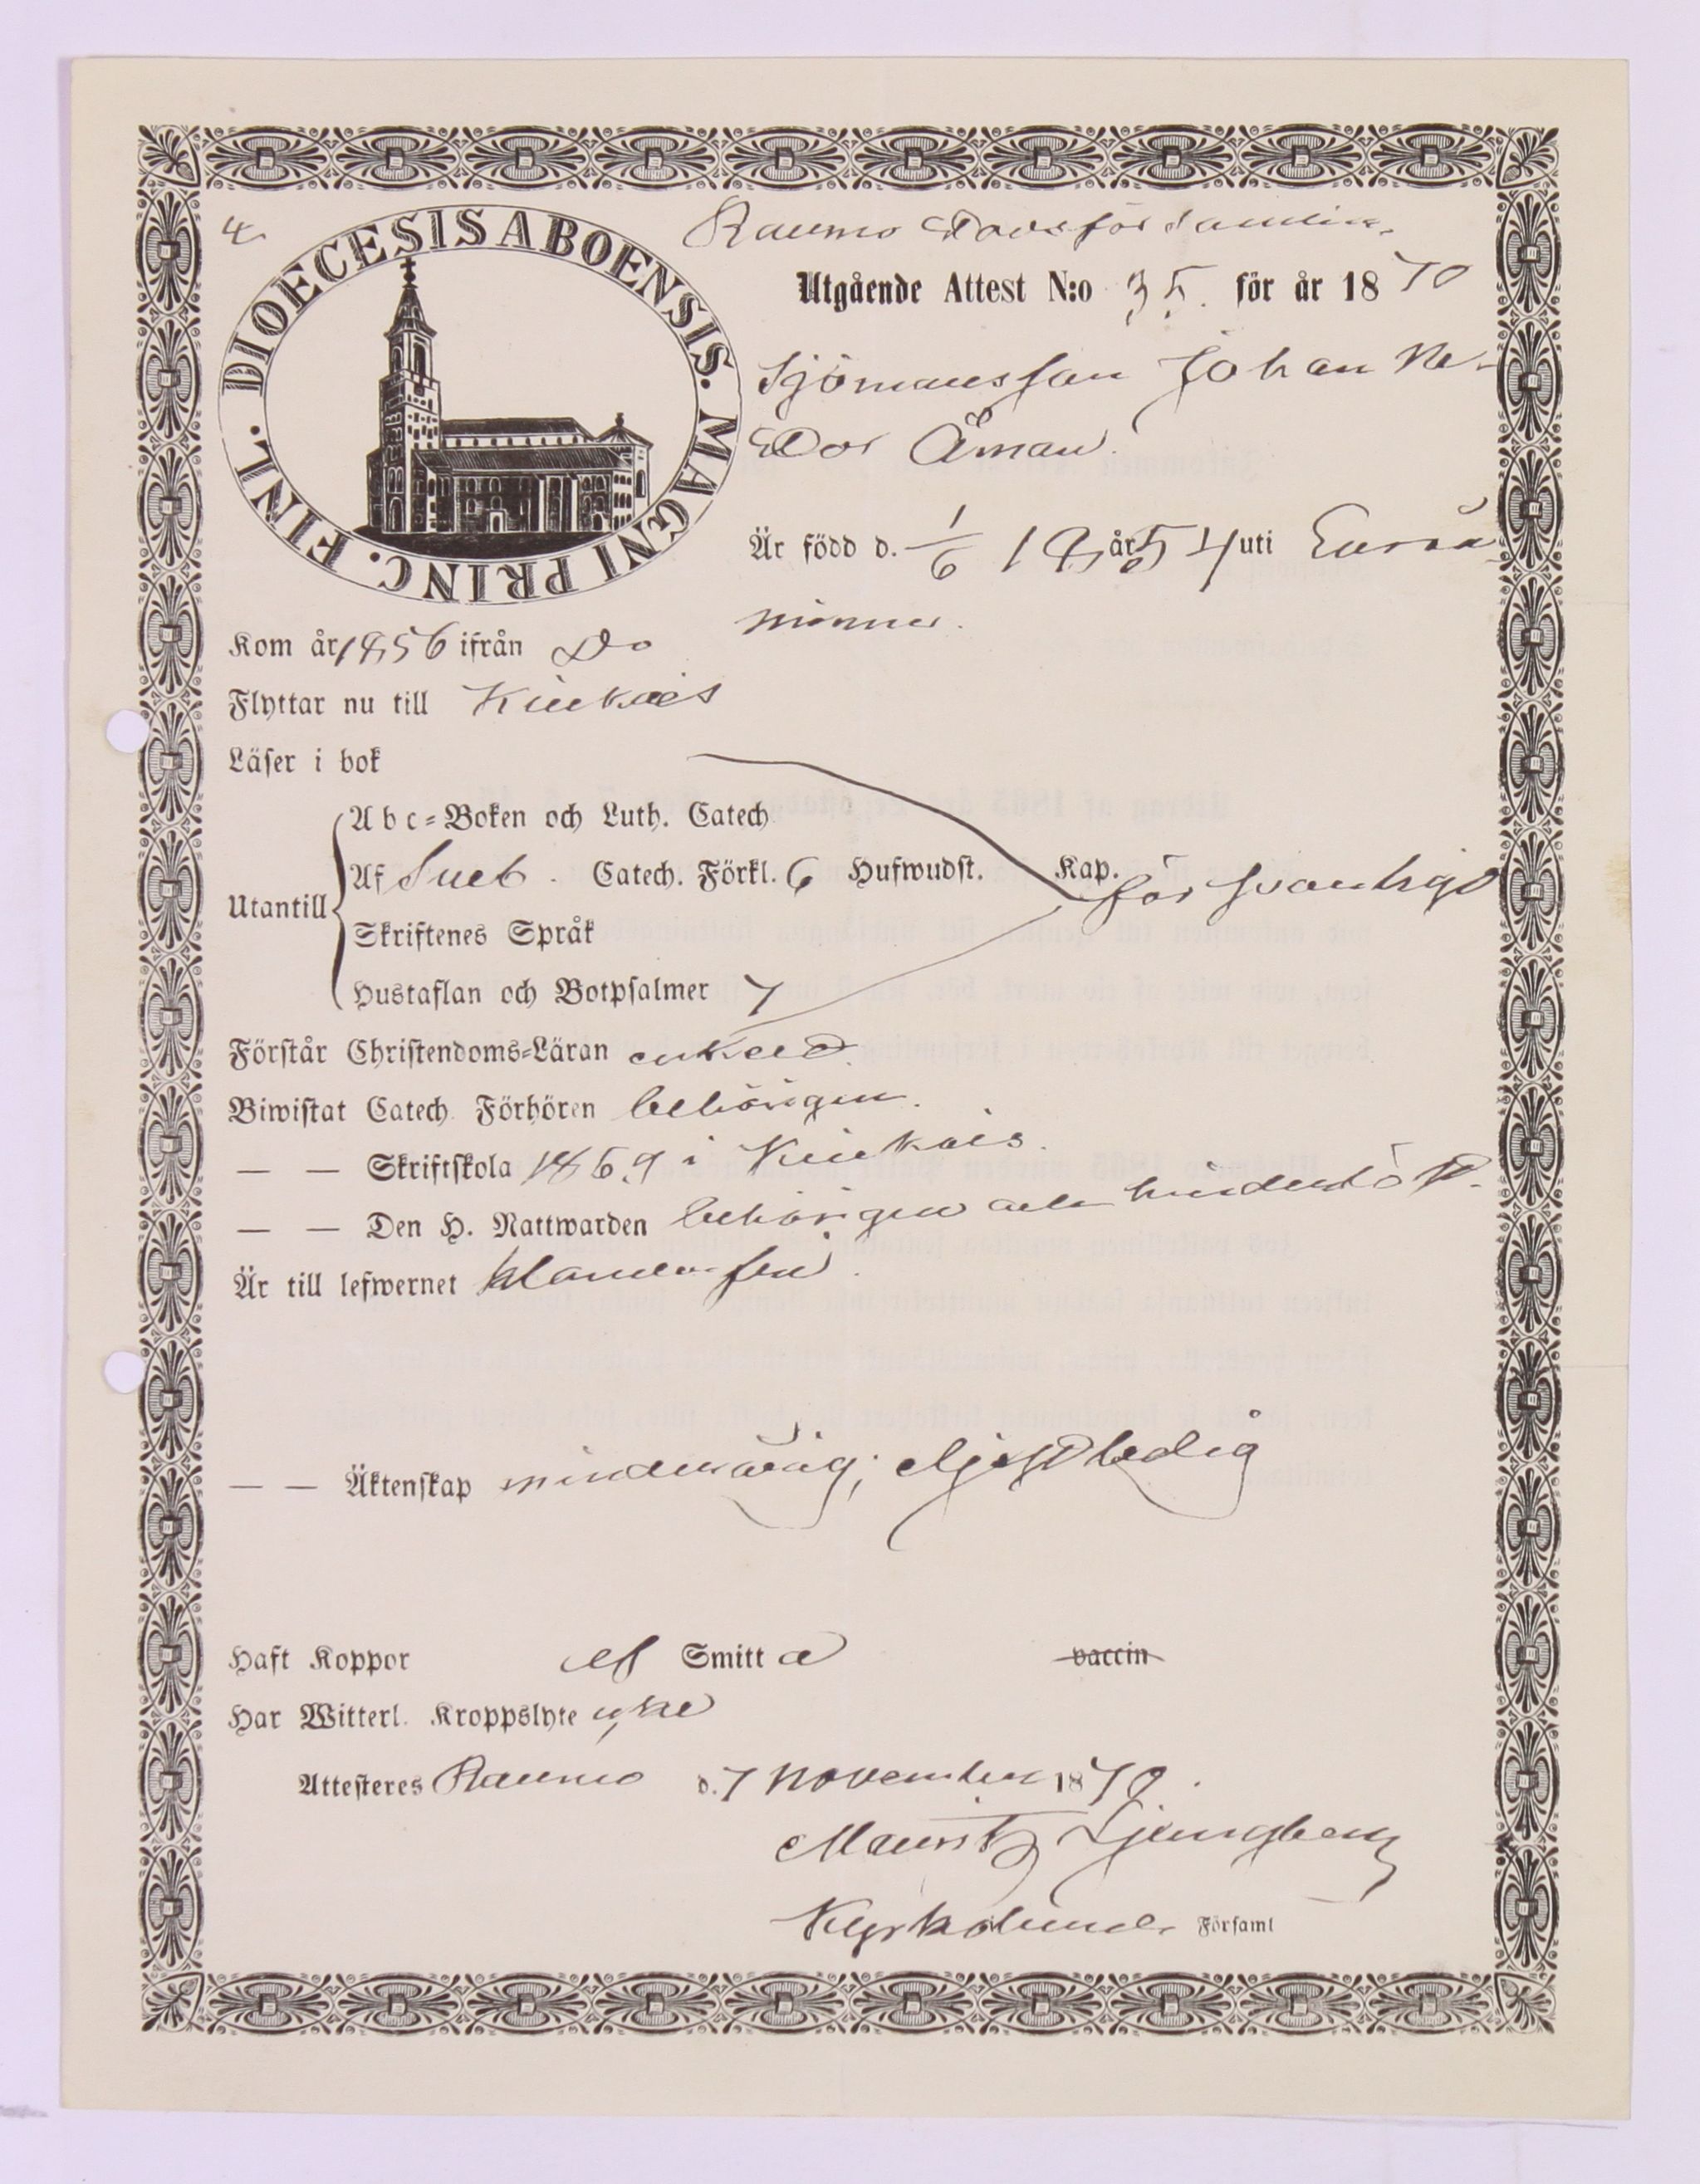 4
DIOECESIS ABOENSIS. MAGNI PRINC. FINL.
Raumo Stadsförsamlin.
Utgående Attest N:o 35. för år 1870
Sjömansson Johan Ne-
Dor Åman.
Är född d. 1/6 1854 år uti Eura
minne.
Kom år 1856 ifrån Do
Flyttar nu till Kiukais
Läser i bok
Abc-Boken och Luth. Catech
Utantill Af Sueb. Catech. Förkl. 6 Hufwudst. Kap. försvarligt
Skriftenes Språk
Hustaflan och Botpsalmer 7
Förstår Christendoms-Läran enkelt.
Biwistat Catech. Förhören behörigen.
— — Skriftskola 1869 i Kiukais.
— — Den H. Nattwarden behörigen och hinderlös.
Är till lefwernet klanderfri.
— — Äktenskap minderårig; eljest ledig
Haft Koppor ej Smitta vaccin
Har Witterl. Kroppslyte icke
Attesteres Raumo d. 7 November 1870.
Mauritz Ljungberg
Kyrkoherde Församl